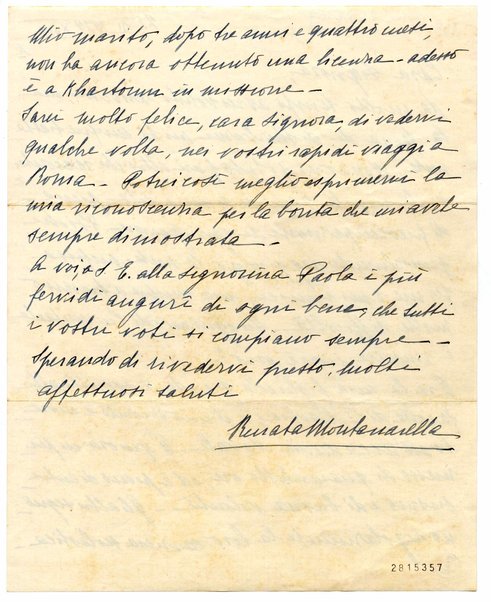 Mio marito, dopo tre anni e quattro mesi,
non ha ancora ottenuto una licenza - adesso
è a Khartoum in missione -
Sarei molto felice, cara Signora, di vedervi
qualche volta, nei vostri rapidi viaggi a
Roma - Potrei così meglio esprimervi la
mia riconoscenza per la bontà che mi avete
sempre dimostrata -
A voi, a S. E. alla Signorina Paola i più
fervidi auguri di ogni bene, che tutti
i vostri voti si compiano sempre -
Sperando di rivedervi presto, molti
affettuosi saluti
Renata Montanarella
2815357